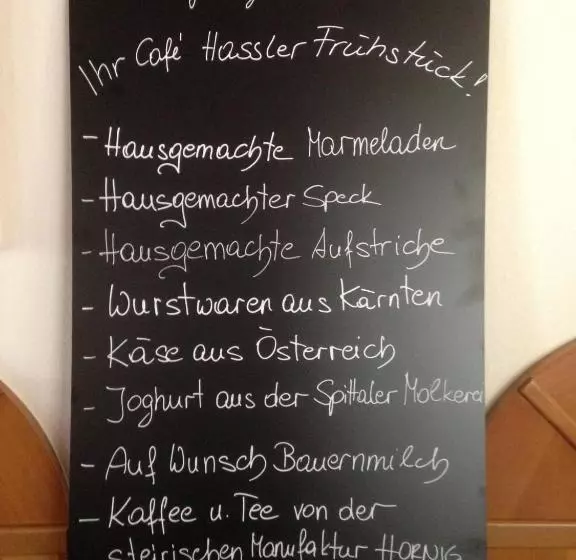 Ihr Café Hassler Frühstück!
- Hausgemachte Marmeladen
- Hausgemachter Speck
- Hausgemachte Aufstriche
- Wurstwaren aus Kärnten
- Käse aus Österreich
- Joghurt aus der Spittaler Molkerei
- Auf Wunsch Bauernmilch
- Kaffee u. Tee von der
steirischen Manufaktur HORNIG